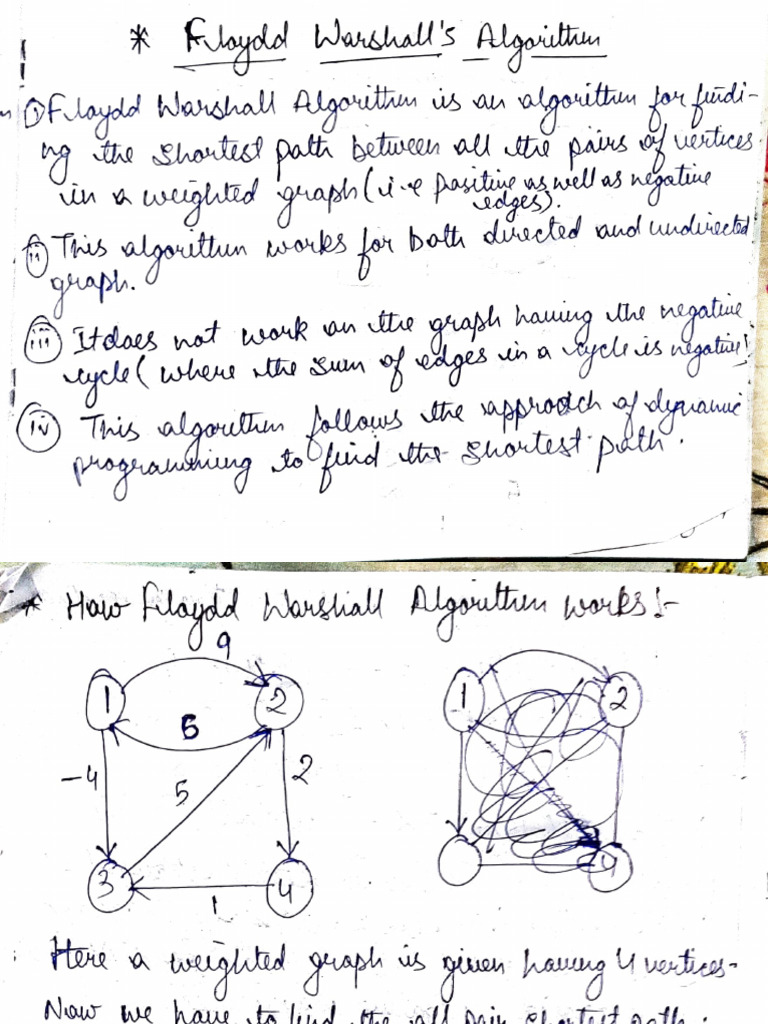 * Flaydd Warshall's Algorithm
① Flaydd Warshall Algorithm is an algorithm for findi-
ng the shortest path between all the pairs of vertices
in a weighted graph (i.e positive as well as negative
edges).
ii This algorithm works for both directed and undirected
graph.
iii It does not work on the graph having the negative
cycle ( where the sum of edges in a cycle is negative)
iv This algorithm follows the approach of dynamic
programming to find the shortest path.
* How Flaydd Warshall Algorithm works:-
9
1 2
6
-4 5 2
3 4
1
1 2
4
Here a weighted graph is given having 4 vertices-
Now we have to find the all pair shortest path.